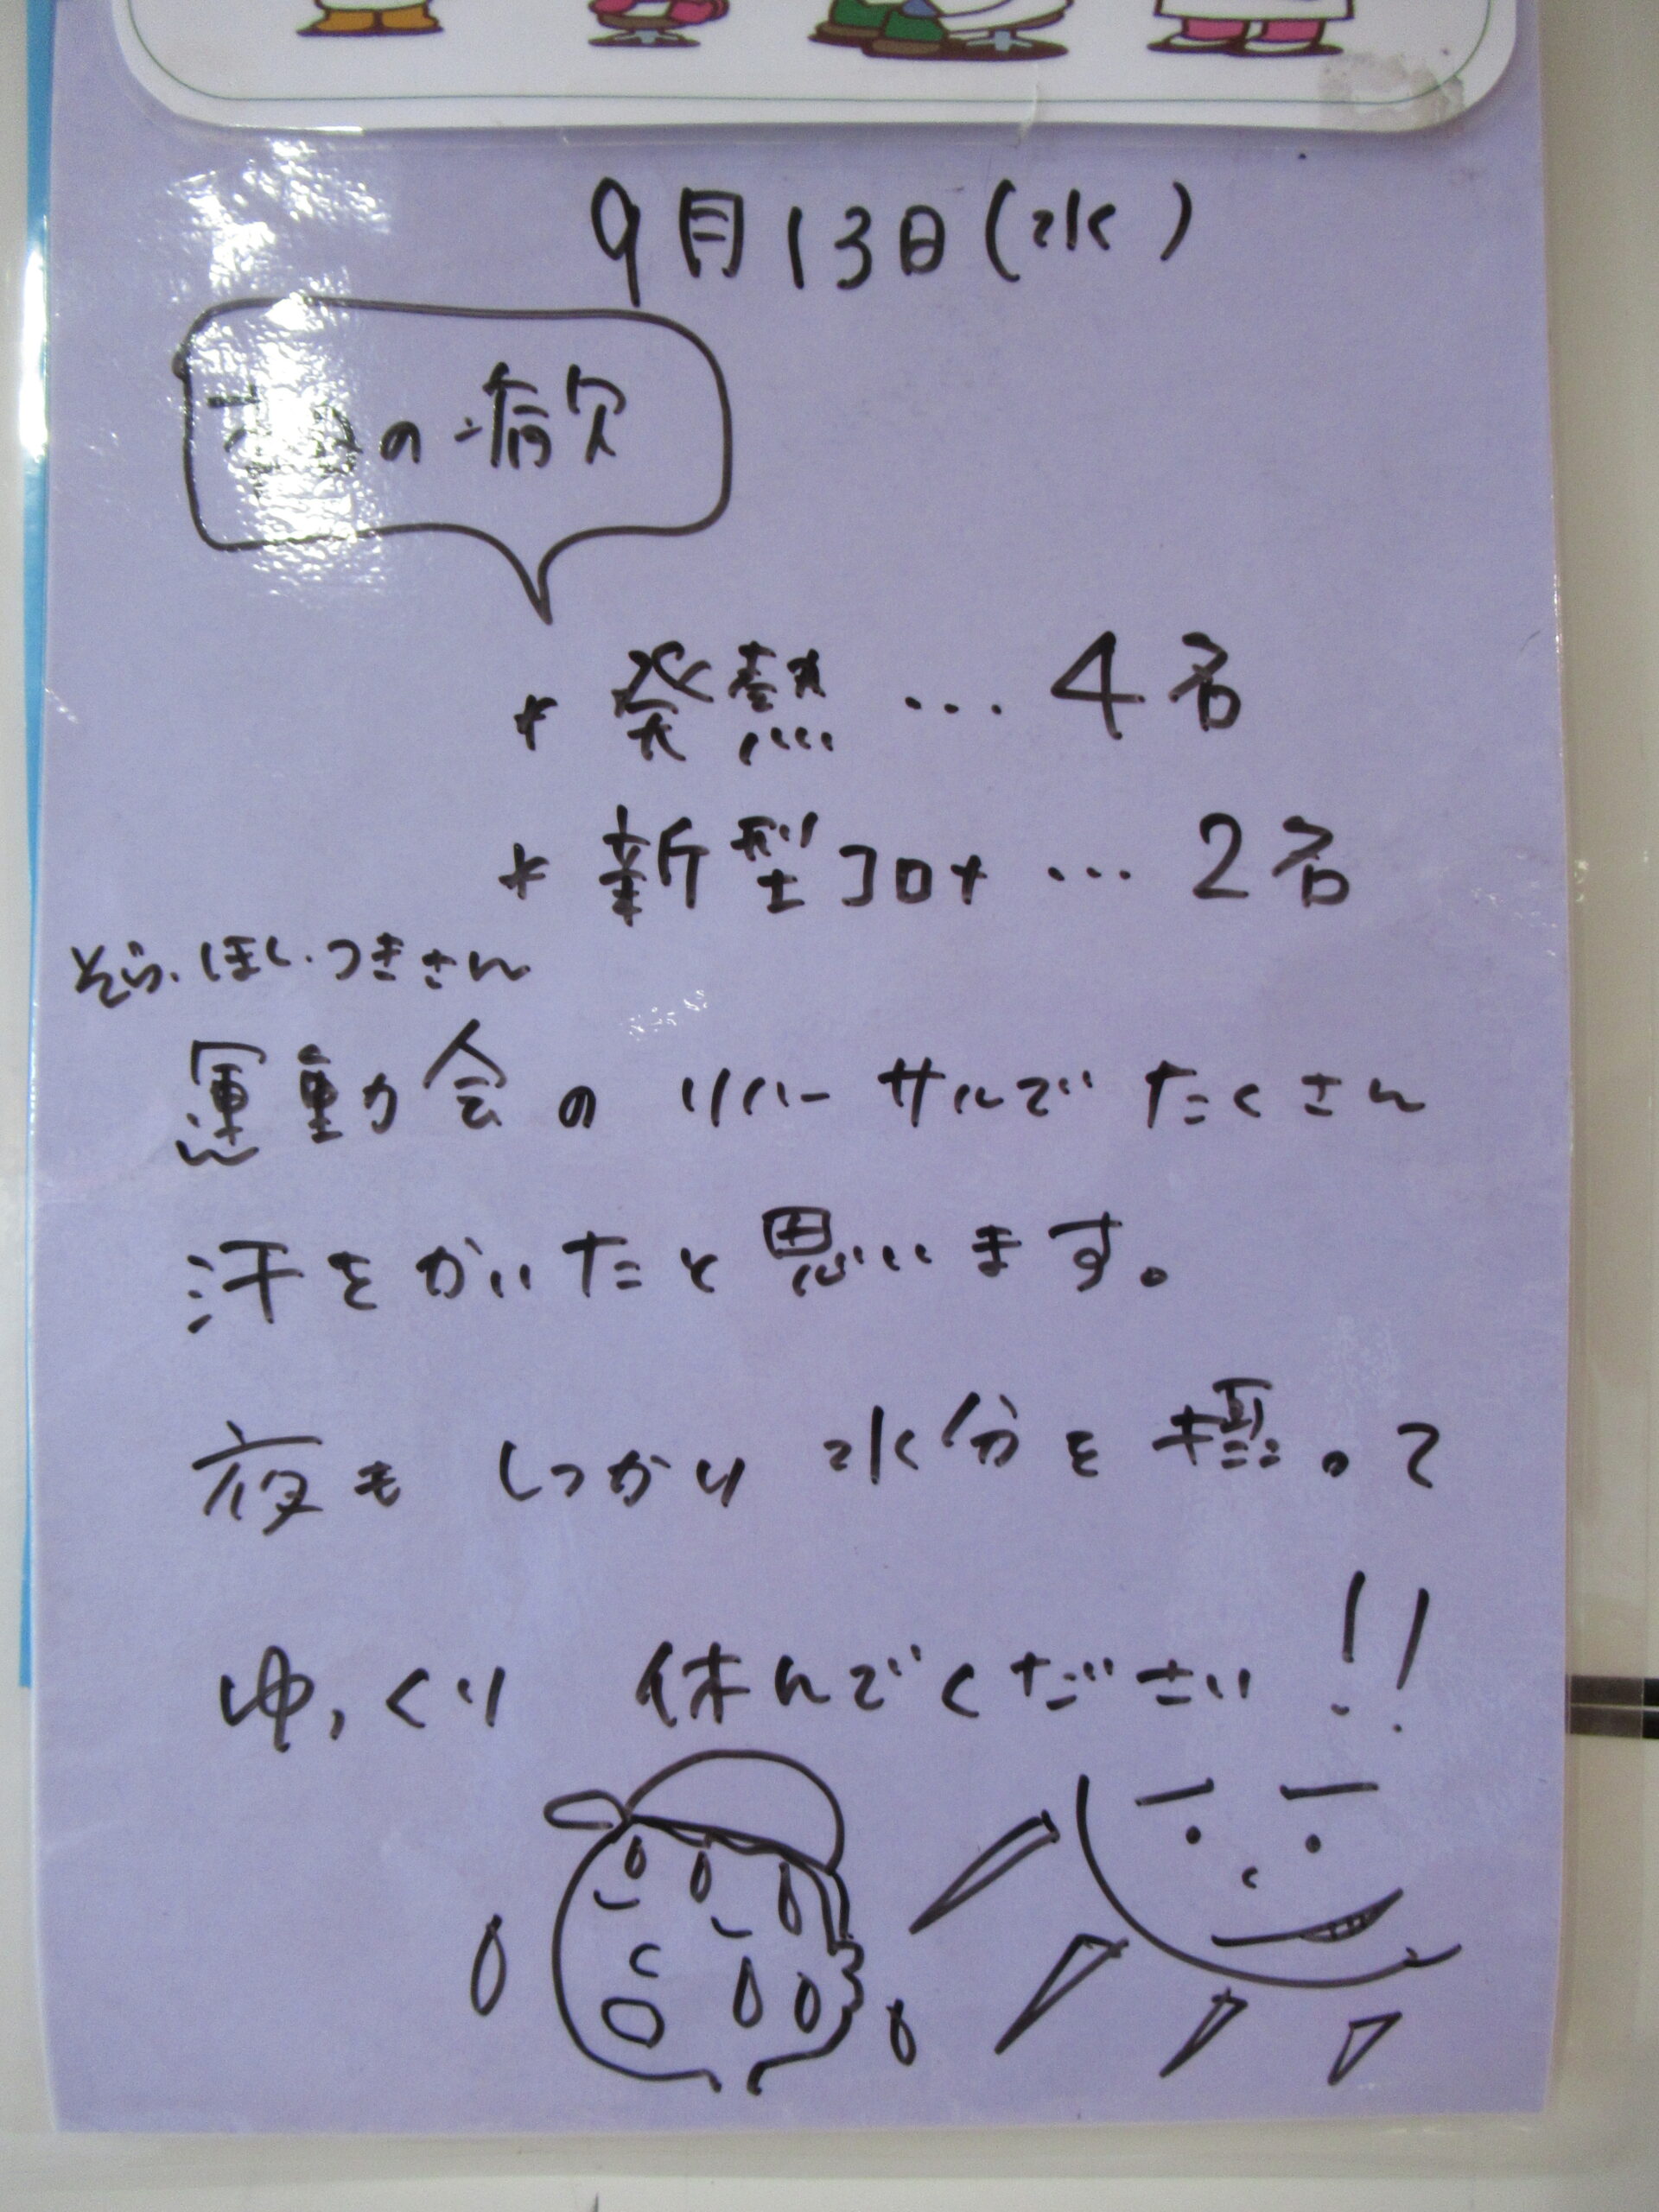 9月13日(水)
の病欠
* 発熱 … 4名
* 新型コロナ … 2名
そら・ほし・つきさん
運動会のリハーサルでたくさん
汗をかいたと思います。
夜もしっかり水分を摂って
ゆっくり休んでください!!